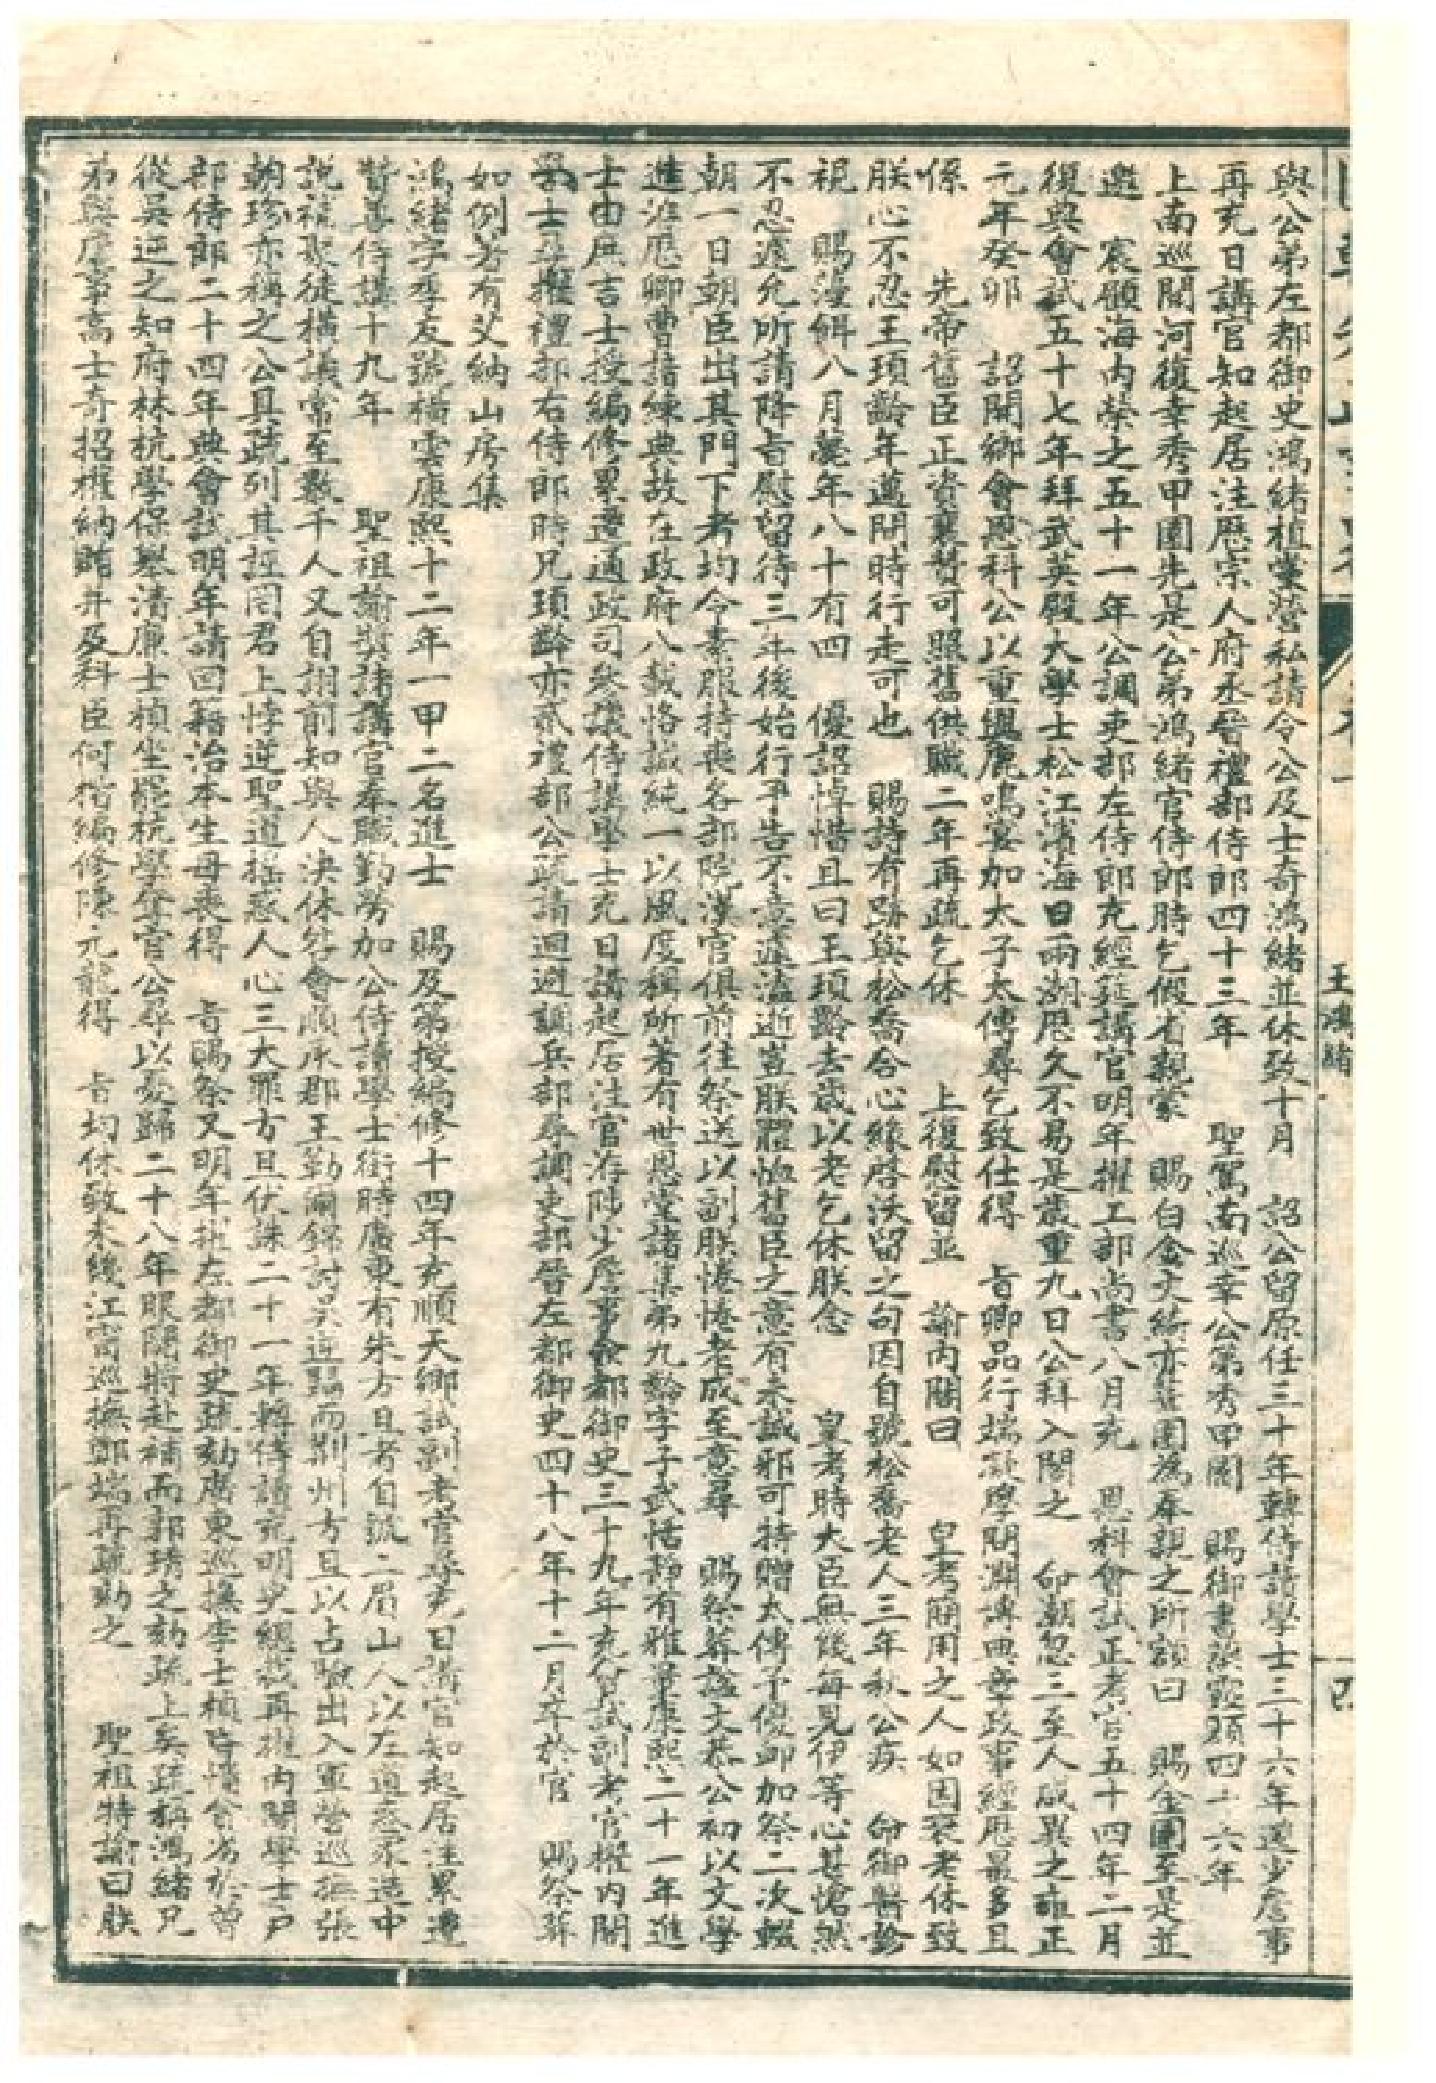 與公弟左都御史鴻緒植黨營私請令公及士奇鴻緒並休致十月 詔公留原任三十年轉侍讀學士三十六年遷少詹事
再充日講官知起居注歷宗人府丞晉禮部侍郎四十三年 聖駕南巡幸公第秀甲園 賜御書額四十六年
上南巡閱河復幸秀甲園先是公弟鴻緒官侍郎時乞假省親蒙 賜白金文綺亦並園為奉親之所額曰 賜金園至是並
邀 宸顧海內榮之五十一年公調吏部左侍郎充經筵講官明年擢工部尚書八月充 恩科會試正考官五十四年二月
復典會試五十七年拜武英殿大學士松江濱海日兩潮歷久不易是歲重九日公拜入閣之 命潮忽三至人咸異之雍正
元年癸卯 詔開鄉會恩科公以重與鹿鳴宴加太子太傅尋乞致仕得 旨卿品行端學問淵博典章政事經歷最多且
係 先帝舊臣正資襄贊可照舊供職二年再疏乞休 上復慰留並 諭內閣曰 皇考簡用之人如因衰老休致
朕心不忍王頊齡年邁間時行走可也 賜詩有跡與松喬合心緣啓沃留之句因自號松喬老人三年秋公疾 命御醫診
視 賜蓡餌八月薨年八十有四 優詔悼惜且曰王頊齡去歲以老乞休朕念 皇考時大臣無幾每見伊等心甚愴然
不忍遽允所請降旨慰留待三年後始行予告不意遽溘逝豈朕體恤舊臣之意有未誠邪可特贈太傅予卹加祭二次輟
朝一日朝臣出其門下者均令素服持喪各部院漢官俱前往祭送以副朕惓惓老成至意尋 賜祭葬諡文恭公初以文學
進洊歷卿曹諳練典故在政府八載恪誠純一以風度稱所著有世恩堂諸集弟九齡字子武恬靜有雅量康熙二十一年進
士由庶吉士授編修累遷通政司參議侍講學士充日講起居注官洊陟少詹事僉都御史三十九年充會試副考官擢內閣
學士尋擢禮部右侍郎時兄頊齡亦貳禮部公疏請迴避調兵部尋調吏部晉左都御史四十八年十二月卒於官 賜祭葬
如例著有艾納山房集
鴻緒字季友號橫雲康熙十二年一甲二名進士 賜及第授編修十四年充順天鄉試副考官尋充日講官知起居注累遷
贊善侍講十九年 聖祖諭獎講官奉職勤勞加公侍讀學士銜時廣東有朱方旦者自號二眉山人以左道惑眾造中
說補聚徒橫議常至數千人又自詡前知與人決休咎會順承郡王勒爾錦討吳逆駐荊州方旦以占驗出入軍營巡撫張
朝珍亦稱之公具疏列其誣罔君上悖逆聖道搖惑人心三大罪方旦伏誅二十一年轉侍講充明史總裁再擢內閣學士戶
部侍郎二十四年典會試明年請回籍治本生母喪得 旨賜祭又明年擢左都御史疏劾廣東巡撫李士楨
從吳逆之知府林杭學保舉清廉士楨坐罷杭學奪官公尋以憂歸二十八年服闋將赴補而郭琇之劾疏上矣疏稱鴻緒兄
弟與詹事高士奇招權納賄并及科臣何楷編修陳元龍得 旨均休致未幾江南巡撫鄭端再疏劾之 聖祖特諭曰朕
王鴻緒
四